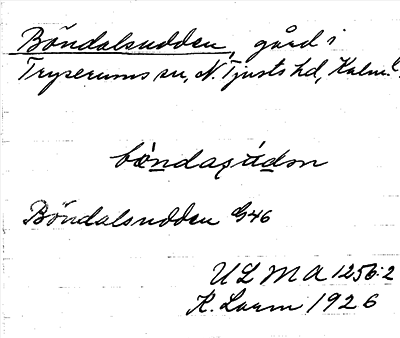 Böndalsudden, gård i
Tryserums sn, N. Tjusts hd, Kalm. l.
Böndalsudden G46
ULMA 1256:2
R. Lorm 1926